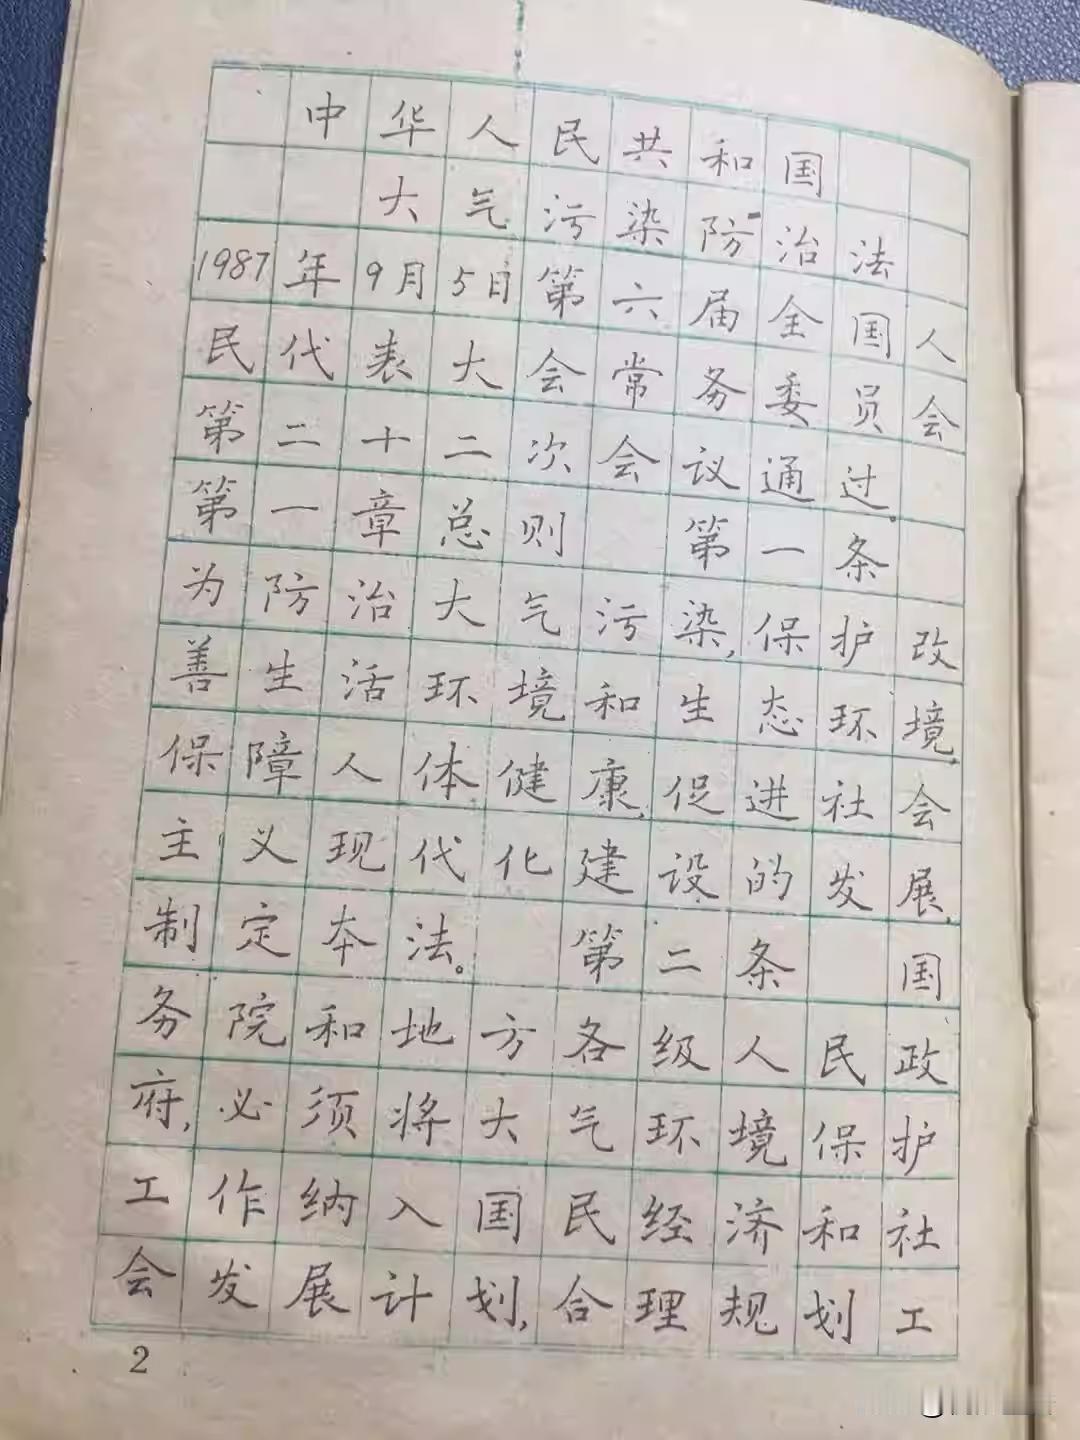 中华人民共和国
大气污染防治法
1987年9月5日第六届全国人
民代表大会常务委员会
第二十二次会议通过。
第一章总则 第一条
为防治大气污染,保护改
善生活环境和生态环境,
保障人体健康,促进社会
主义现代化建设的发展,
制定本法。 第二条 国
务院和地方各级人民政
府,必须将大气环境保护
工作纳入国民经济和社
会发展计划,合理规划工
2